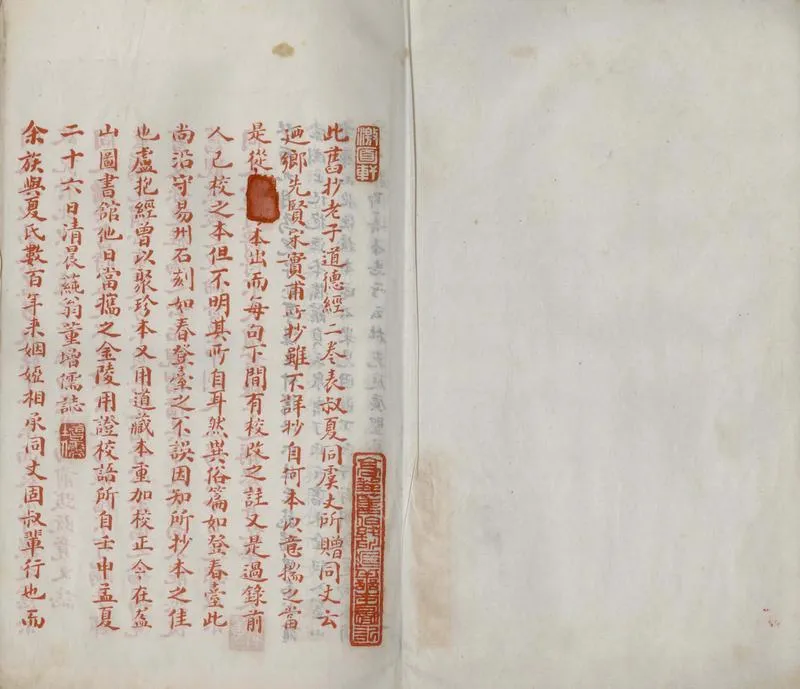 此舊抄老子道德經二卷表叔夏同虞丈所贈同丈云
迺鄉先賢宋實甫所抄雖不詳抄自何本以意揣之當
是從本出而每句下間有校改之註又是過錄前
人已校之本但不明其所自耳然異俗篇如登春臺此
尚沿守易州石刻如春登臺之不誤因知所抄本之佳
也盧抱經曾以聚珍本又用道藏本重加校正今在盋
山圖書館他日當攜之金陵用證校語所自壬申孟夏
二十六日清晨蒓翁董增儒誌
余族與夏氏數百年來姻婭相承同丈固叔輩行也而